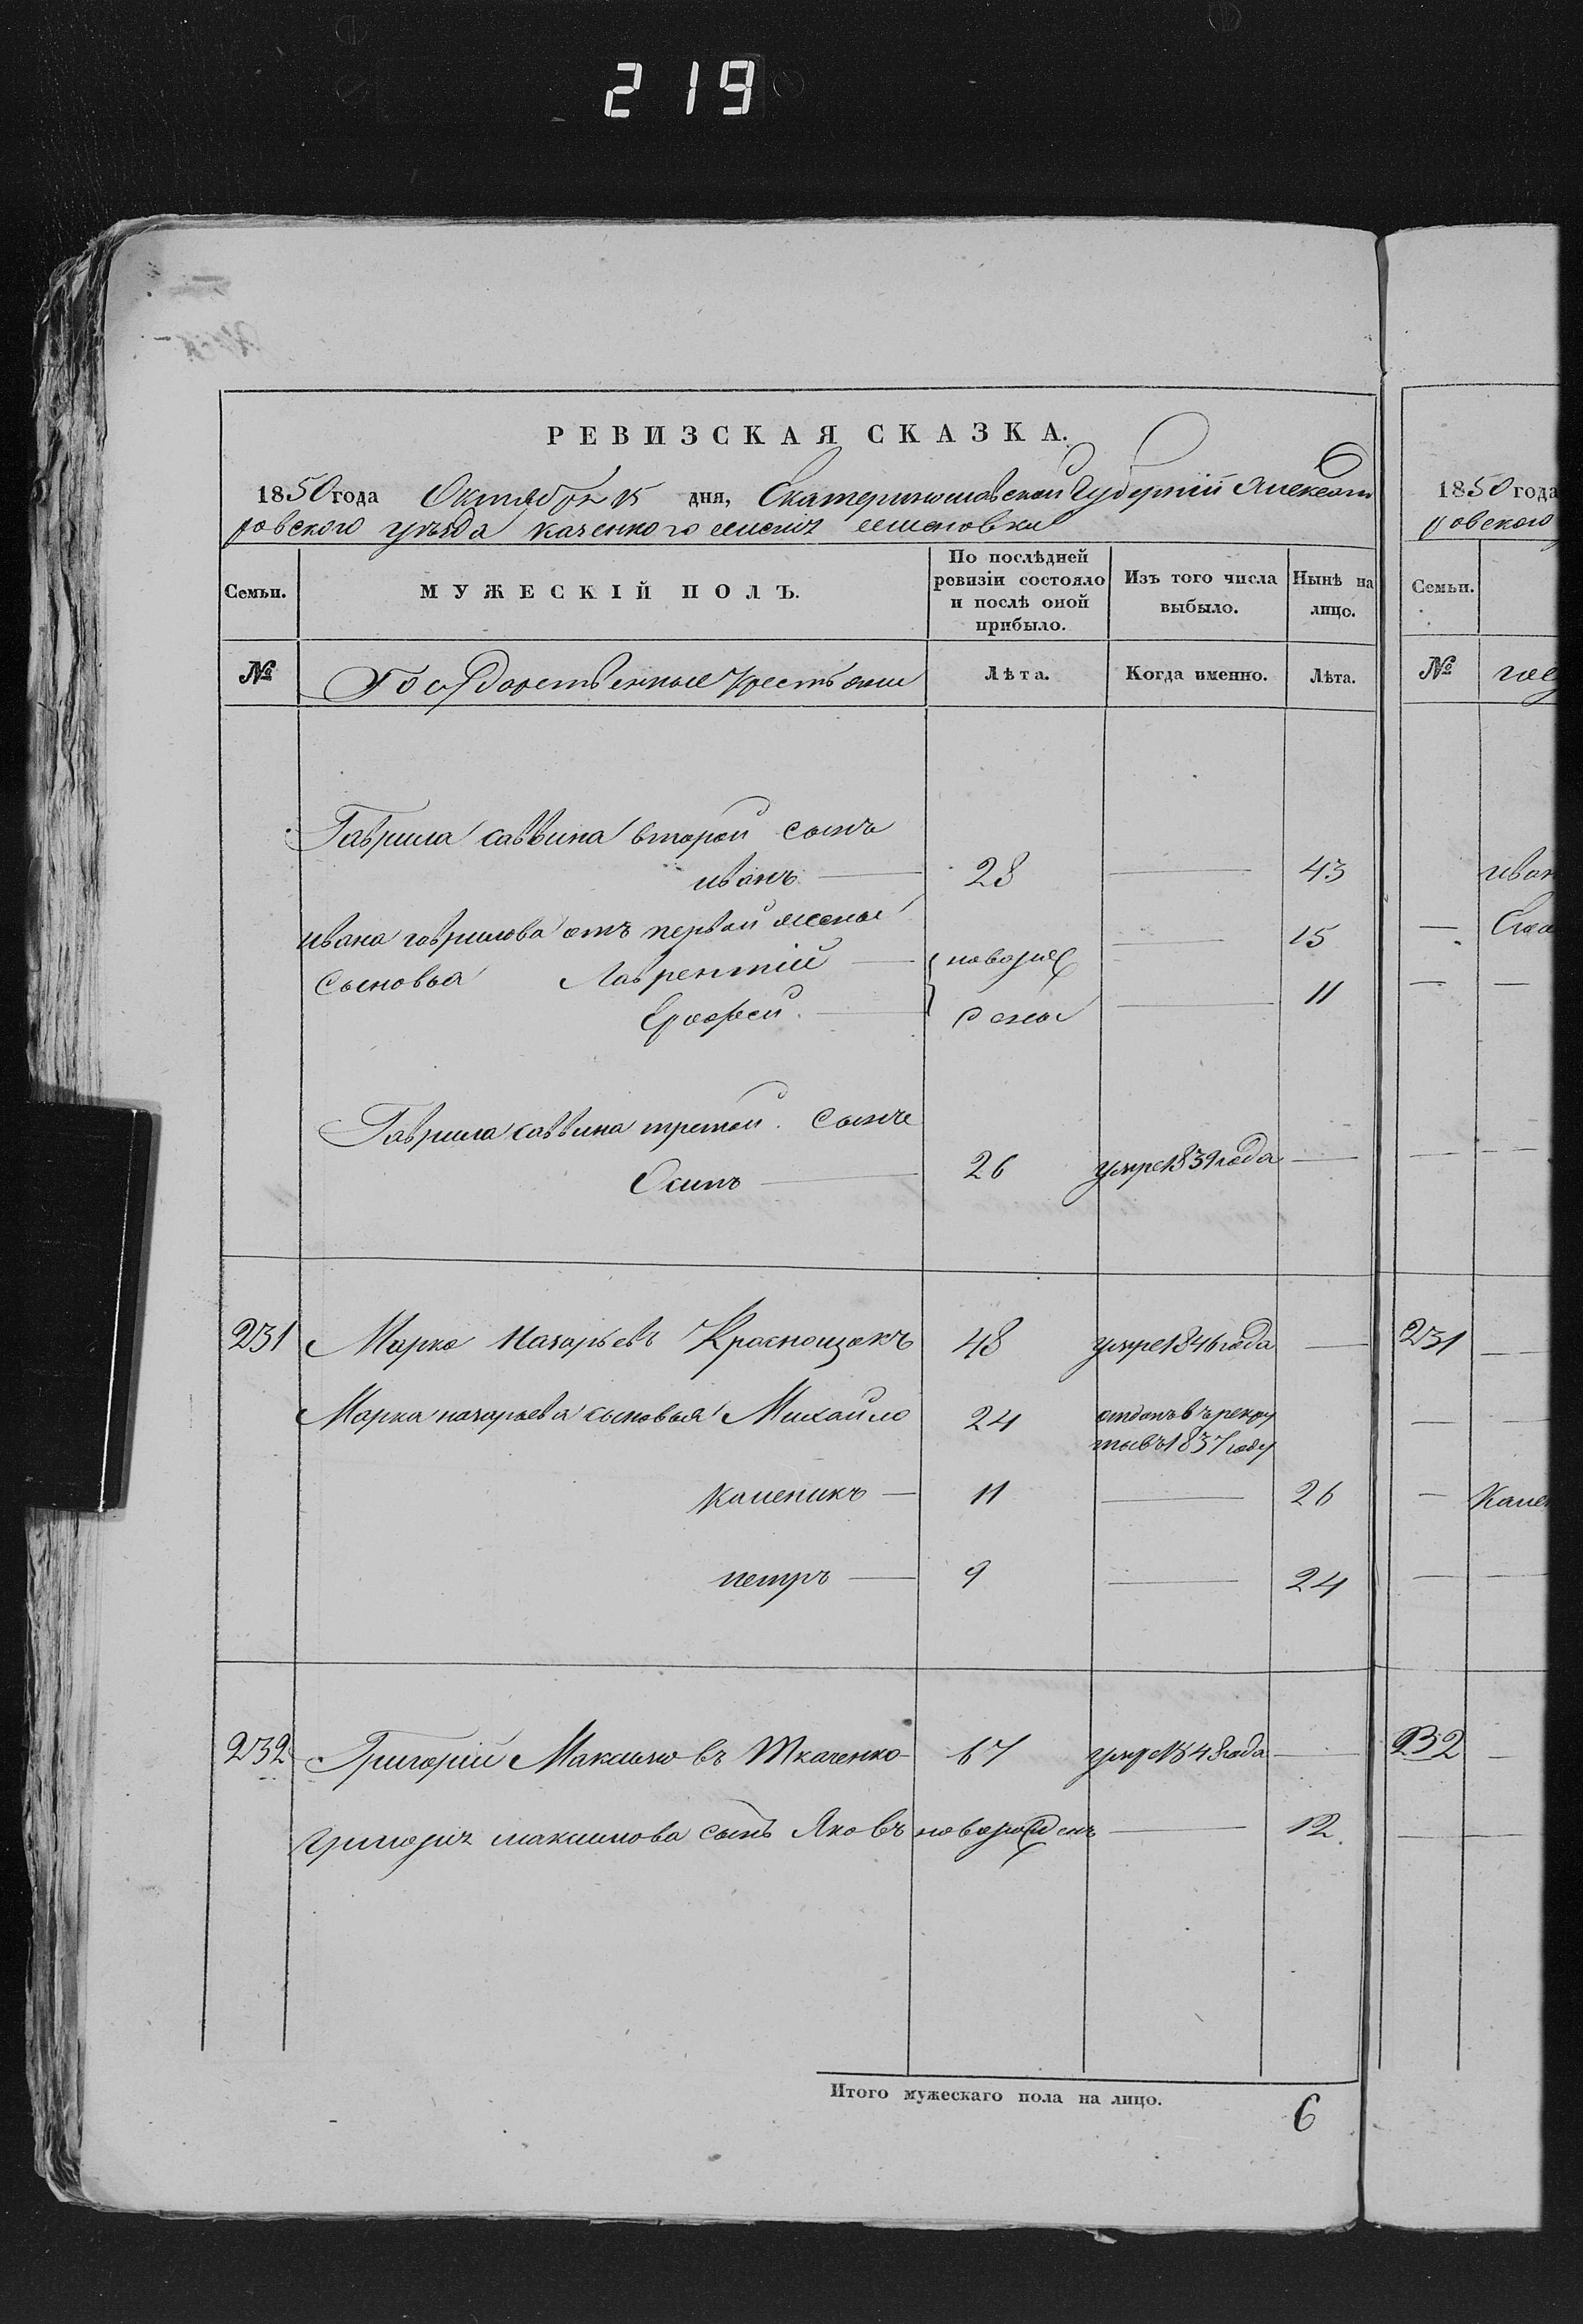 219
РЕВИЗСКАЯ СКАЗКА.
1850 года Октября 15 дня, Екатеринославской Губернии Алексан
ровского уѣзда казенного
Семьи.
МУЖЕСКІЙ ПОЛЪ.
По послѣдней ревизіи состояло и послѣ оной прибыло.
Изъ того числа выбыло.
Нынѣ на лицо.
№
Государственные крестьяне
Лѣта.
Когда именно.
Лѣта.
Гаврила саввина второй сынъ
иванъ — 28 — 43
ивана гаврилова отъ первой жены
сыновья Лаврентій — новорож — 15
Ерофей — дены — 11
Гаврила саввина третой сынъ
Осипъ — 26 умре 1839 года —
231 Марко Назарьевъ Краснощокъ 48 умре 1846 года —
Марка назарьева сыновья Михайло 24 отданъ въ рекру
ты въ 1837 году
каленикъ — 11 — 26
петръ — 9 — 24
232 Григорій Максимовъ Ткаченко 67 умре 1848 года —
григорія максимова сынъ Яковъ новорожденъ — 12
Итого мужескаго пола на лицо. 6
1850 года
ровского
Семьи.
№
231
232